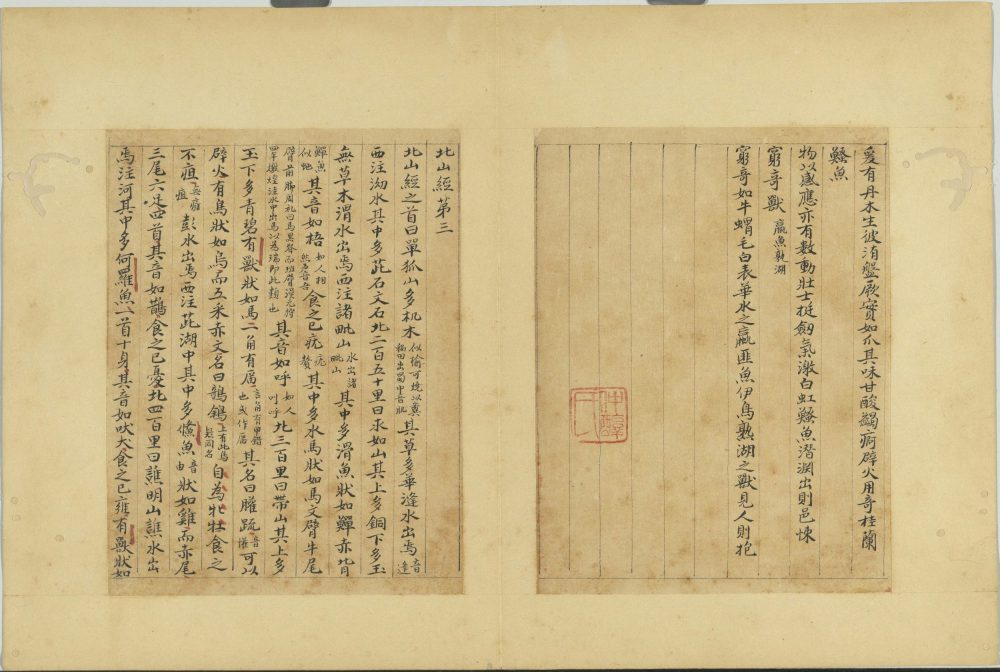 爰有丹木生彼洧盤厥實如爪其味甘酸蠲痾辟火用奇桂蘭
鰠魚
物以感應亦有數動壯士挺劔氣激白虹鰠魚潛淵出則邑悚
窮奇獸 蠃魚孰湖
窮奇如牛蝟毛自表濛水之蠃匪魚伊鳥孰湖之獸見人則抱
北山經第三
北山經之首曰單狐山多机木 似榆可燒以糞稻田出蜀中音肌 其草多華逢水出焉 音逢
西注泑水其中多茈石文石北二百五十里曰求如山其上多銅下多玉
無草木滑水出焉西注諸毗山 水出諸毗山 其中多滑魚狀如鱓赤背
鱓魚似蛇 其音如梧 如人相然 音吾 食之已疣 疣贅 其中多水馬狀如馬文臂牛尾
臂前脚周礼曰馬黑脊而班臂漢元狩四年燉煌渥水中出馬以為瑞即此類也 其音如呼 如人叫呼 北三百里曰帶山其上多
玉下多青碧有獸狀如馬一角有厲 言角有甲錯也或作厝 其名曰䑏疏 音懽 可以
辟火有鳥狀如烏而五采赤文名曰鵸鵌 上有此鳥疑同名 自為牝牡食之
不疽 無癰疽 彭水出焉西注茈湖中其中多儵魚 音由 狀如雞而赤尾
三尾六足四首其音如鵲食之已憂北四百里曰譙明山譙水出
焉注河其中多何羅魚一首十身其音如吠犬食之已癰有獸狀如